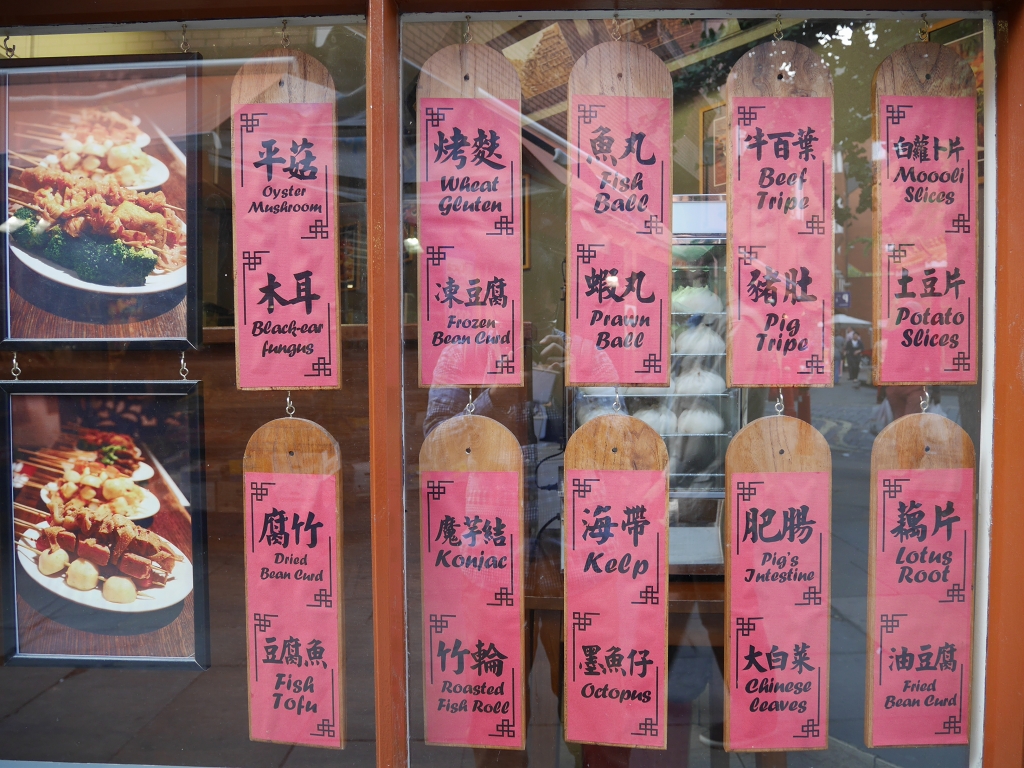 平菇
Oyster
Mushroom
木耳
Black-ear
fungus
烤麩
Wheat
Gluten
凍豆腐
Frozen
Bean Curd
魚丸
Fish
Ball
蝦丸
Prawn
Ball
牛百葉
Beef
Tripe
豬肚
Pig
Tripe
白蘿卜片
Moooli
Slices
土豆片
Potato
Slices
腐竹
Dried
Bean Curd
豆腐魚
Fish
Tofu
魔芋結
Konjac
竹輪
Roasted
Fish Roll
海帶
Kelp
墨魚仔
Octopus
肥腸
Pig's
Intestine
大白菜
Chinese
leaves
藕片
Lotus
Root
油豆腐
Fried
Bean Curd